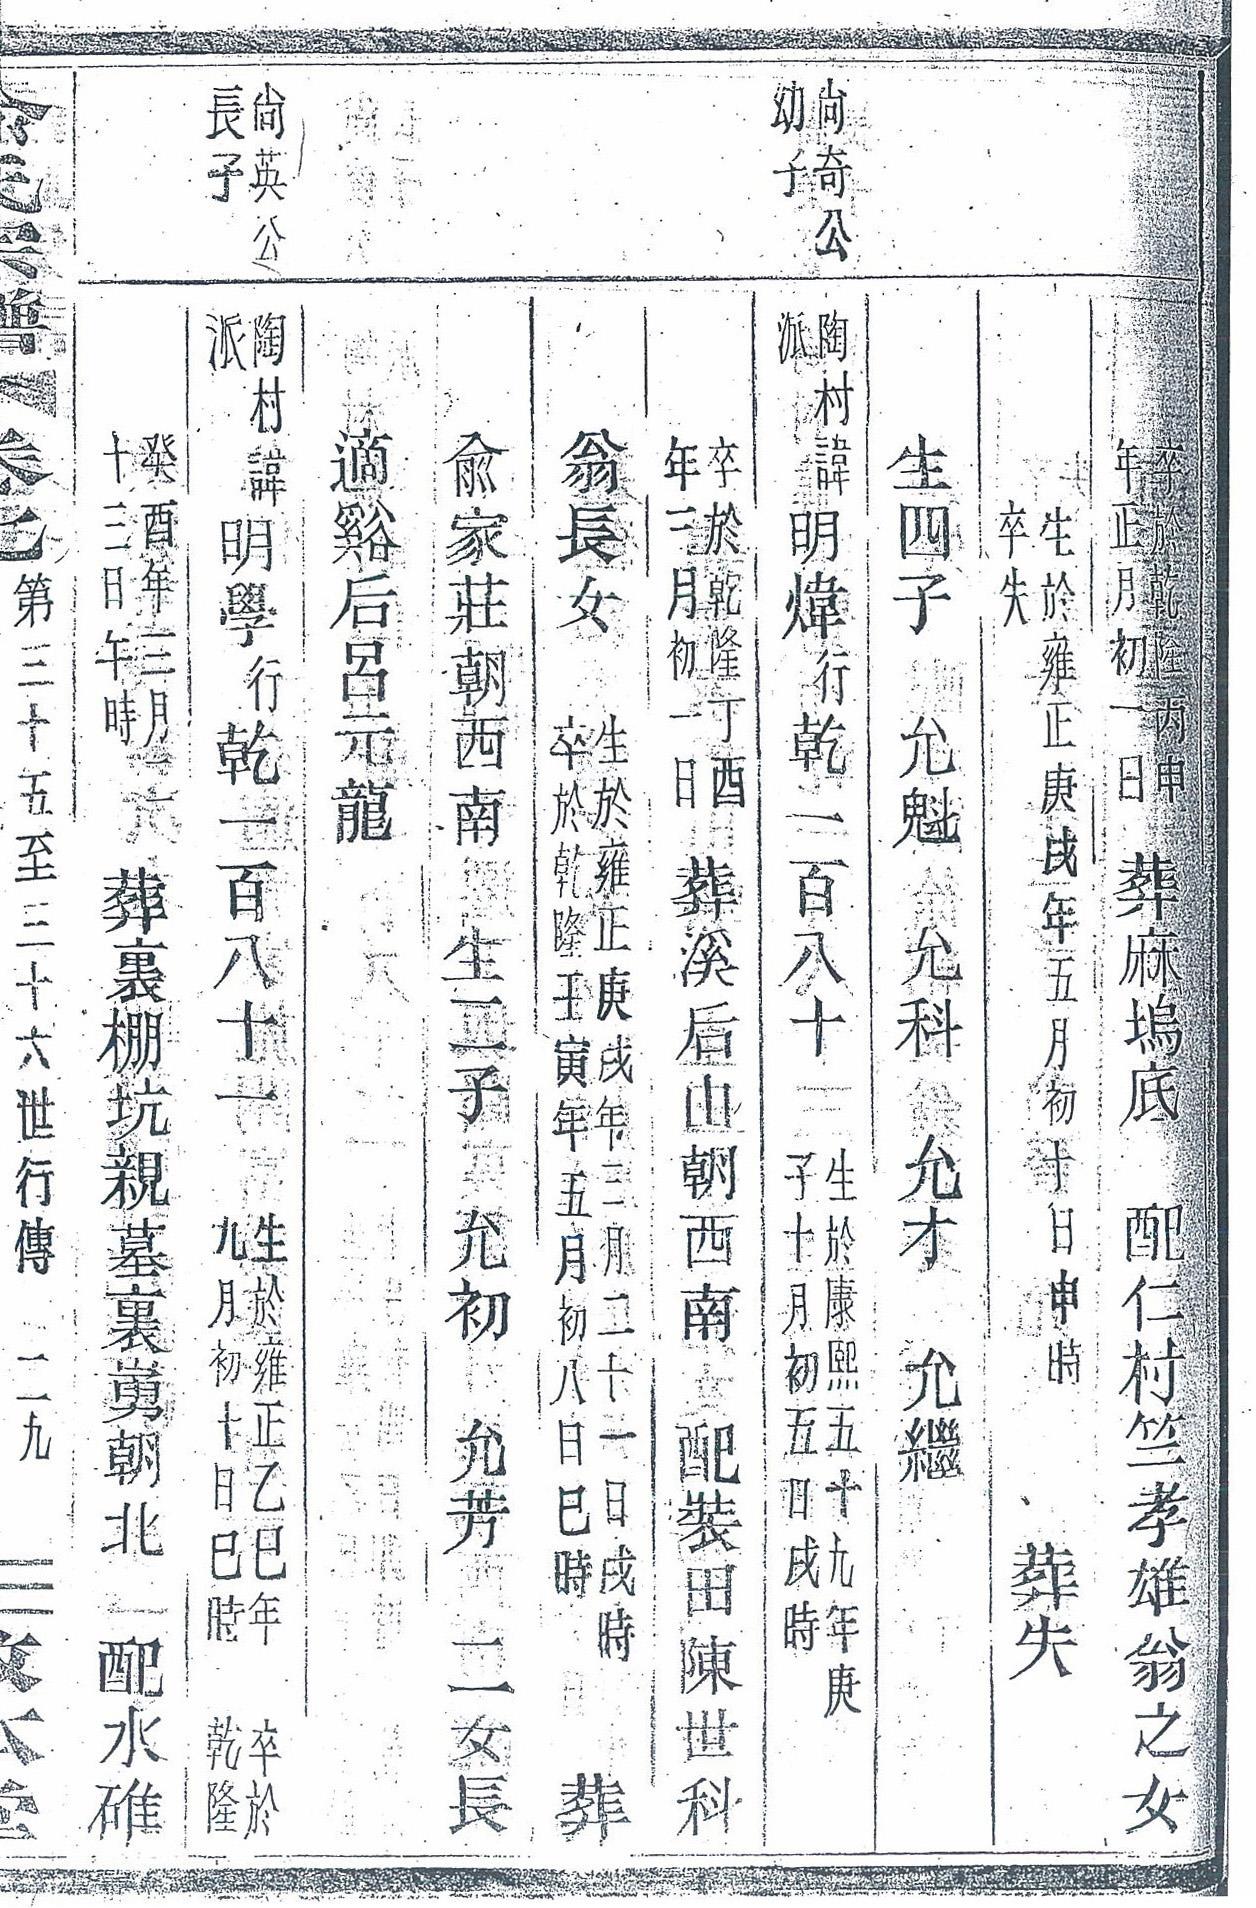 卒於乾隆丙申
年正月初一日
葬麻塢底　配仁村竺孝雄翁之女
生於雍正庚戌年五月初十日申時
卒失
葬失
生四子　允魁　允科　允才　允繼
尚奇公
幼子
陶村諱
派
明煒行乾一百八十三
生於康熙五十九年庚
子十月初五日戌時
卒於乾隆丁酉
年三月初一日
葬溪后山朝西南　配裝田陳世科
翁長女
生於雍正庚戌年三月二十一日戌時
卒於乾隆壬寅年五月初八日巳時
葬
俞家莊朝西南　生二子　允初　允芳　二女長
適谿后呂元龍
尚英公
長子
陶村諱
派
明學行乾一百八十一
生於雍正乙巳年
九月初十日巳時
卒於
乾隆
癸酉年三月
十三日午時
葬裏棚坑親墓裏嵎朝北　配水碓
氏宗譜　卷七　第三十五至三十六世行傳　一二九